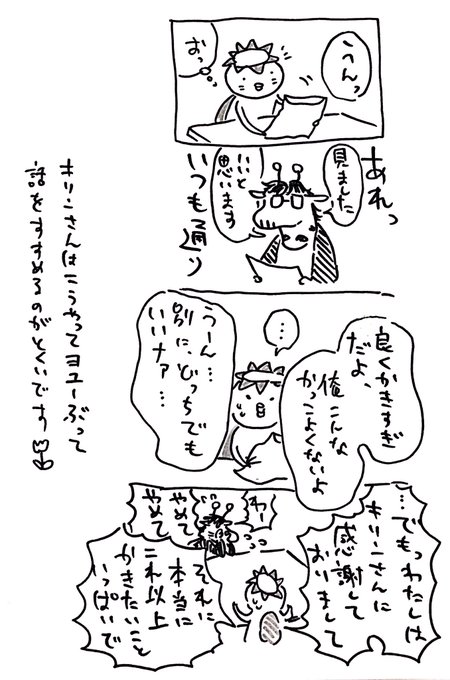 うんっ
おっ
あれっ
いつも通り
見ました
いいと
思います
良くかきすぎ
だよ、
俺こんな
かっこよくないよ
…
うーん…
別に、どっちでも
いいナァ…
…でもっわたしは
キリンさんに
感謝して
おりまして
わー
やめて
やめて
それに
本当に
これ以上
かきたいこと
いっぱいで
キリンさんはこうやってヨユーぶって
話をすすめるのがとくいです